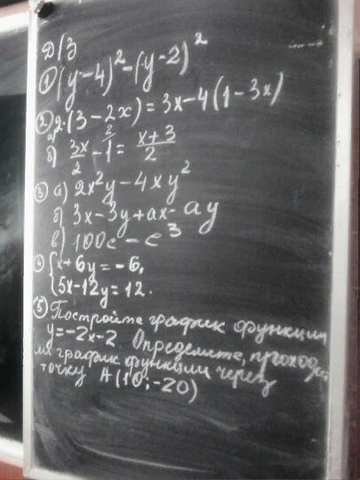 Д/З
① (y-4)² - (y-2)²
② а) 2·(3-2x) = 3x-4(1-3x)
б) 3x/2 - 1 = x+3/2
③ а) 2x²y-4xy²
б) 3x-3y+ax-ay
в) 100c-c³
④ { x+6y=-6,
5x-12y=12.
⑤ Постройте график функции
y=-2x-2 Определите, проходит
ли график функции через
точку A(10;-20)